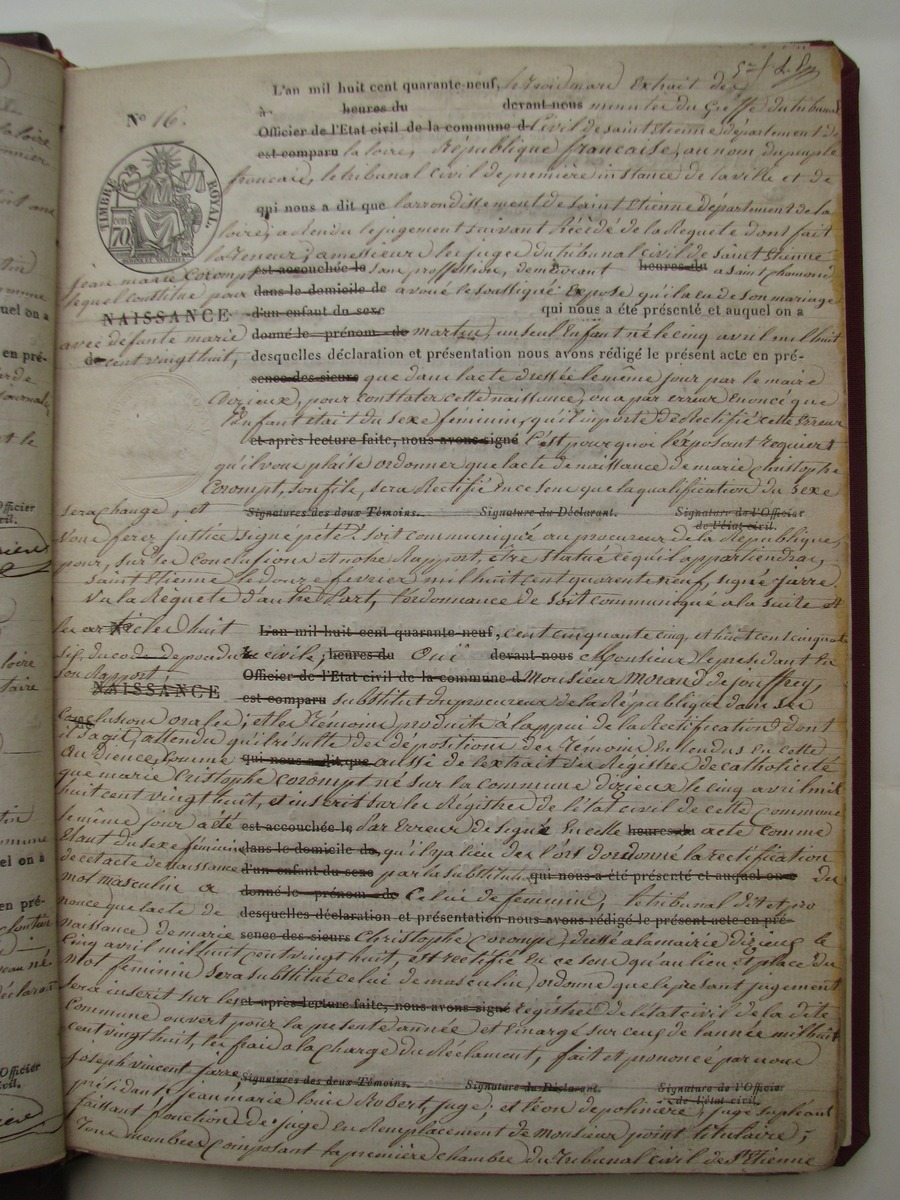 L'an mil huit cent quarante-neuf, le trois mars Extrait des
N° 16. à heures du devant nous minutes du Greffe du tribunal
Officier de l'Etat civil de la commune d Civil de saint Etienne département de
est comparu la loire, République francaise, au nom du peuple
francais, le tribunal Civil de premiere instance de la ville et de
TIMBRE ROYAL
cen 70
qui nous a dit que l'arrondissement de Saint Etienne département de la
loire, a rendu le jugement suivant Précédé de la Requete dont fait
la teneur; a messieurs les juges du tribunal civil de saint Etienne
jean marie Corompt est accouchée le sans proffession, demeurant heures du a saint chamond
lequel constitue pour dans le domicile de avoué le soussigné Expose qu'il a eu de son mariage
NAISSANCE d'un enfant du sexe qui nous a été présenté et auquel on a
avec defante marie donné le prénom de martin, un seul Enfant né le cinq avril mil huit
de cent vingt huit, desquelles déclaration et présentation nous avons rédigé le présent acte en pré-
sence des sieurs que dans l'acte dressée le même jour par le maire
Dizieux, pour constater cette naissance, on a par erreur Enoncé que
l'enfant était du sexe féminin, qu'il importe de Rectifié cette Erreur
et après lecture faite, nous avons signé C'est pourquoi l'exposant requiert
qu'il vous plaise ordonner que l'acte de naissance de marie christophe
Corompt, son fils, sera Rectifié En ce sens que la qualification du sexe
sera changé, et Signatures des deux Témoins. Signature du Déclarant. Signature de l'Officier
de l'état civil.
Vous ferez justice signé soit communiqué au procureur de la République,
pour, sur les Conclusions et notre Rapport, etre statué ce qu'il appartiendra,
saint Etienne le douze fevrier mil huit cent quarente neuf, signé jarre.
Vu la Requete d'autre Part, l'ordonnance de soit communiqué a la suite et
les articles huit L'an mil huit cent quarante-neuf, cent cinquante cinq, et huit cent cinquante
six, du code de procedure civile, heures du Ouï devant nous Monsieur le president En
son Rapport Officier de l'Etat civil de la commune d Monsieur Morand de jouffrey,
NAISSANCE
est comparu substitut du procureur de la République dans ses
Conclusions orales; et les temoins produits à l'appui de la Rectification dont
il s'agit, attendu qu'il résulte des dépositions des Témoins Entendus En cette
audience, comme qui nous a dit que aussi de l'extrait des Régistres de catholicité
que marie Cristophe corompt né sur la commune d'izieux le cinq avril mil
huit cent vingt huit, et inscrit sur les Régistres de l'état civil de cette commune
le même jour a été est accouchée le Par Erreur designé En celle heures du acte comme
Etant du sexe féminin dans le domicile de, qu'il y a lieu des lors d'ordonné la rectification
de cet acte de naissance d'un enfant du sexe par la substitution qui nous a été présenté et auquel on a du
mot masculin a donné le prénom de Celui de feminin, le tribunal dit et pro
nonce que l'acte de desquelles déclaration et présentation nous avons rédigé le présent acte en pré-
naissance de marie sence des sieurs Christophe Corompt, dressé a la mairie d'izieux le
Cinq avril mil huit cent vingt huit, est rectifié En ce sens qu'au lieu et place du
mot féminin sera substitué celui de masculin, ordonne que le present jugement
sera inscrit sur les et après lecture faite, nous avons signé régistres de l'état civil de la dite
Commune ouvert pour la presente année et Emargé sur ceux de l'année mil huit
cent vingt huit, les frais a la charge du Réclamant, fait et prononcé par nous
joseph vincent jarre Signatures des deux Témoins. Signature du Déclarant. Signature de l'Officier
de l'état civil.
président, jean marie louis Robert, juge, et léon de polinière, juge supléant
faissant fonctions de juge En Remplacement de Monsieur point titulaire;
Tous membres Composant la première chambre du Tribunal civil de St Etienne